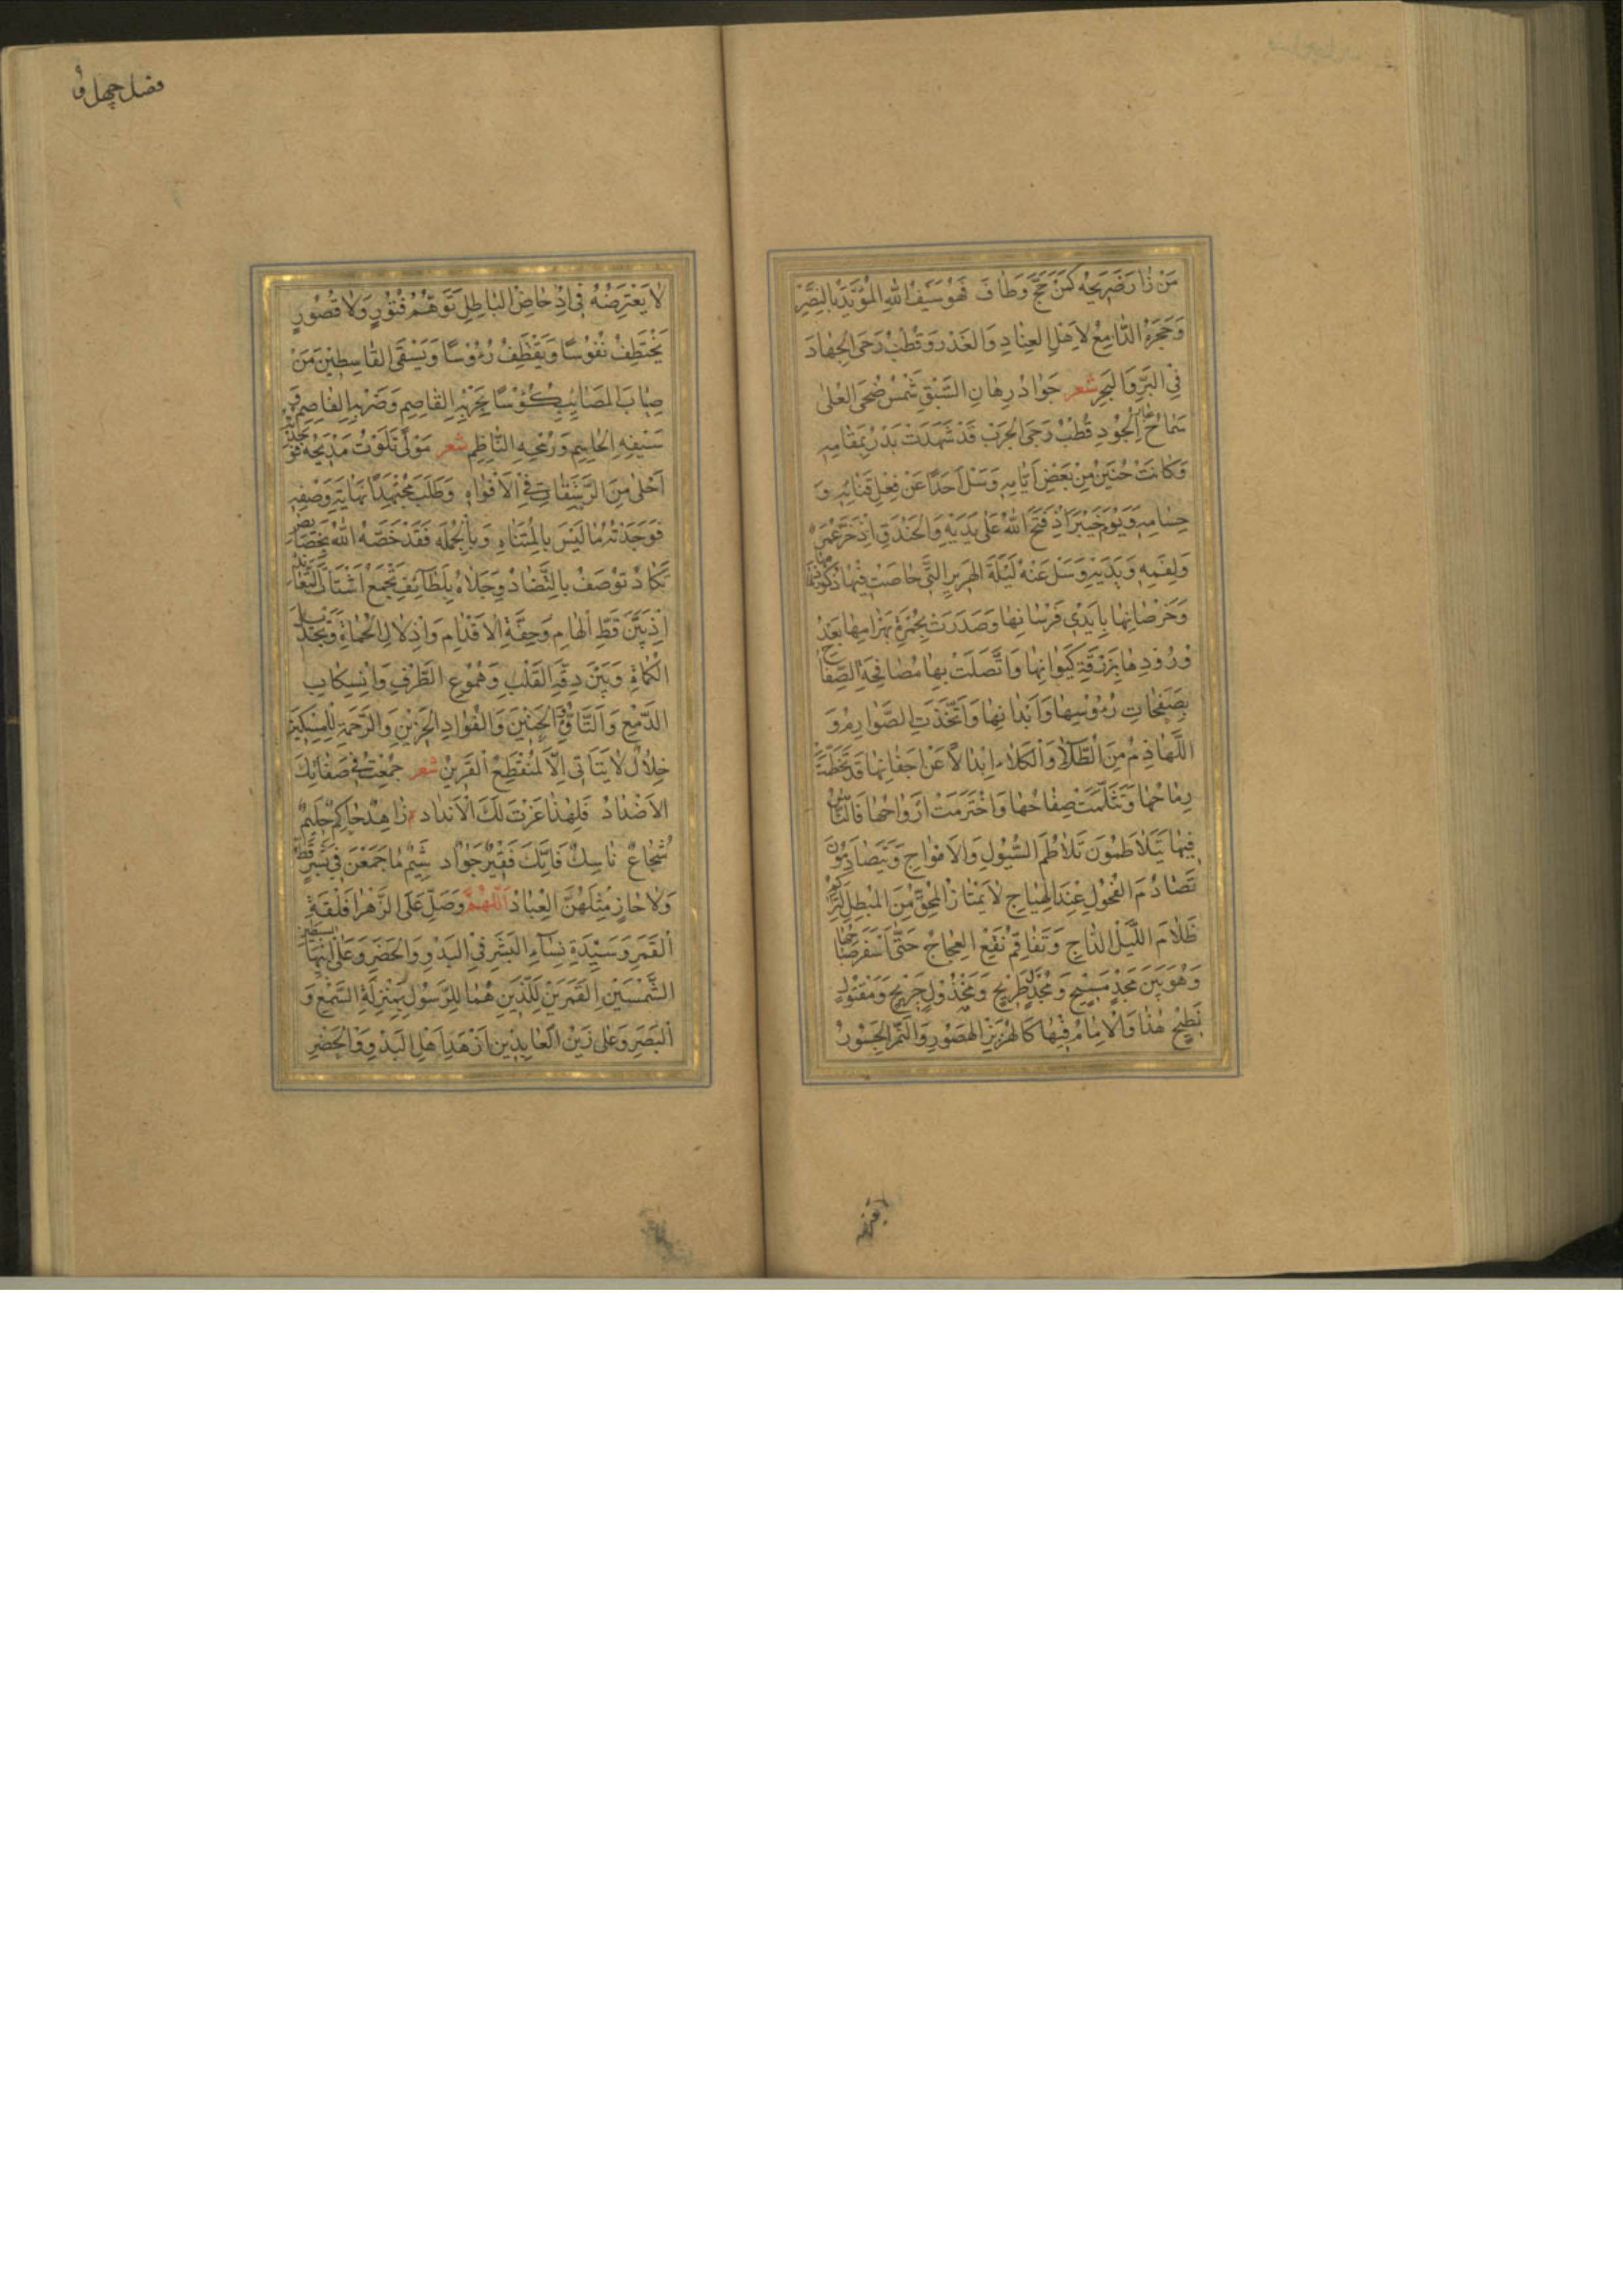 مَنْ زٰارَ ضَرِيحَهُ كَمَنْ حَجَّ وَطٰافَ فَهُوَ سَيْفُ اللّٰهِ الْمُؤَيَّدُ بِالنَّصْرِ
وَحَجَرُهُ الدّٰامِغُ لِاَهْلِ الْعِنٰادِ وَالْغَدْرِ وَقُطْبُ رَحَى الْجِهٰادَ
فِي الْبَرِّ وَالْبَحْرِ شعر جَوٰادُ رِهٰانِ السَّبْقِ شَمْسُ ضُحَى الْعُلىٰ
سَمٰاحُ الْجُودِ قُطْبُ رَحَى الْحَرْبِ قَدْ شَهَدَتْ بَدْرُ بِمَقٰامِهِ
وَكٰانَتْ حُنَيْنُ مِنْ بَعْضِ اَيّٰامِهِ وَسَلْ اُحُدًا عَنْ فِعْلِ قَنٰاتِهِ وَ
حُسٰامِهِ وَيَوْمَ خَيْبَرَ اِذْ فَتَحَ اللّٰهُ عَلىٰ يَدَيْهِ وَالْخَنْدَقِ اِذْ خَرَّ عَمْرٌو
وَلِفَمِهِ وَيَدَيْهِ وَسَلْ عَنْهُ لَيْلَةَ الْهَرِيرِ الَّتِي خٰاضَتْ فِيهٰا ذُكُورُهٰا
وَخِرْصٰانِهٰا بِاَيْدِي فُرْسٰانِهٰا وَصَدَرَتْ بِحُمْرَةِ بَهْرٰامِهٰا بَعْدَ
وُرُودِهٰا بِزُرْقَةِ كَيْوٰانِهٰا وَاتَّصَلَتْ بِهٰا مُصٰافَحَةُ الصِّفٰاحِ
بِصَفَحٰاتِ رُؤُسِهٰا وَاَبْدٰانِهٰا وَاتَّخَذَتِ الصَّوٰارِمُ وَ
اللَّهٰاذِمُ مِنَ الطُّلاٰ وَالْكُلاٰ اِبْدٰالاً عَنْ اَجْفٰانِهٰا قَدْ تَحَطَّمَتْ
رِمٰاحُهٰا وَتَثَلَّمَتْ صِفٰاحُهٰا وَاخْتَرَمَتْ اَرْوٰاحُهٰا فَالنّٰاسُ
فِيهٰا يَتَلاٰطَمُونَ تَلاٰطُمَ السُّيُولِ وَالْاَمْوٰاجِ وَيَتَصٰادَمُونَ
تَصٰادُمَ الْفُحُولِ عِنْدَ الْهِيٰاجِ لاٰ يَمْتٰازُ الْمُحِقُّ مِنَ الْمُبْطِلِ لِتَرٰاكُمِ
ظَلاٰمِ اللَّيْلِ الدّٰاجِ وَتَفٰاقُمِ نَقْعِ الْعَجٰاجِ حَتّٰى اَسْفَرَ صَبٰاحُهٰا
وَهُوَ بَيْنَ مَسِيحٍ وَمُجَدَّلٍ طَرِيحٍ وَمَخْذُولٍ جَرِيحٍ وَمَقْتُولٍ
نَطِيحٍ هٰذٰا وَالْاِمٰامُ فِيهٰا كَالْهِزَبْرِ الْهَصُورِ وَالنَّمِرِ الْجَسُورُ
فصل چهل و
لاٰ يَعْتَرِضُهُ فِي اِدْحٰاضِ الْبٰاطِلِ تَوَهُّمُ فُتُورٍ وَلاٰ قُصُورٍ
يَخْتَطِفُ نُفُوسًا وَيَقْطِفُ رُؤُسًا وَيَسْقَى الْقٰاسِطِينَ مِنْ
صٰابِ الْمَصٰائِبِ كُؤُسًا بِحَرْبِهِ الْقٰاصِمِ وَضَرْبِهِ الْفٰاصِمِ وَ
سَيْفِهِ الْحٰاسِمِ وَرُمْحِهِ النّٰاظِمِ شعر مَوْلىً تَلَوْتُ مَدِيحَهُ فَوَجَدْتُهُ
اَحْلىٰ مِنَ الرَّشَفٰاتِ فِي الْاَفْوٰاهِ وَطَلَبَ مُجْتَهِدًا نِهٰايَةِ وَصْفِهِ
فَوَجَدْتُهُ مٰا لَيْسَ بِالْمُتَنٰاهِ وَبِالْجُمْلَه فَقَدْ خَصَّهُ اللّٰهُ بِخَصٰائِصَ
تَكٰادُ تُوصَفُ بِالتَّضٰادُ وَجَلاٰهُ بِلَطٰائِفِ تَجْمَعُ اَشْتٰاتَ التَّعٰانُدِ
اِذْ بَيْنَ قَطِّ الْهٰامِ وَخِفَّةِ الْاَقْدٰامِ وَاِذْلاٰلِ الْحُمٰاةِ وَتَجْدِيلِ
الْكُمٰاةِ وَبَيْنَ دِقَّةِ الْقَلْبِ وَهُمُوعِ الطَّرْفِ وَانْسِكٰابِ
الدَّمْعِ وَالتَّأَوُّهِ الْحَنِينِ وَالْفُؤٰادِ الْحَزِينِ وَالرَّحْمَةِ لِلْمِسْكِينِ
خِلاٰلٌ لاٰ يَتَأَتّٰى اِلاّٰ لِمُنْقَطِعِ الْقَرِينِ شعر جُمِعَتْ فِي صِفٰاتِكَ
الْاَضْدٰادُ فَلِهٰذٰا عَزَّتْ لَكَ الْاَنْدٰادُ زٰاهِدٌ حٰاكِمٌ حَلِيمٌ
شُجٰاعٌ نٰاسِكٌ فٰاتِكٌ فَقِيرٌ جَوٰاد شِيَمٌ مٰا جُمِعْنَ فِي بَشَرٍ قَطُّ
وَلاٰ حٰازَ مِثْلَهُنَّ الْعِبٰادُ اَللّٰهُمَّ وَصَلِّ عَلَى الزَّهْرٰا فَلْقَةِ
الْقَمَرِ وَسَيِّدَةِ نِسٰاءِ الْبَشَرِ فِي الْبَدْوِ وَالْحَضَرِ وَعَلىٰ ابْنَيْهَا السِّبْطَيْنِ
الشَّمْسَيْنِ الْقَمَرَيْنِ لَلَّذَيْنِ هُمٰا لِلرَّسُولِ بِمَنْزِلَةِ السَّمْعِ وَ
الْبَصَرِ وَعَلىٰ زَيْنِ الْعٰابِدِينَ اَزْهَدِ اَهْلِ الْبَدْوِ وَالْحَضَرِ